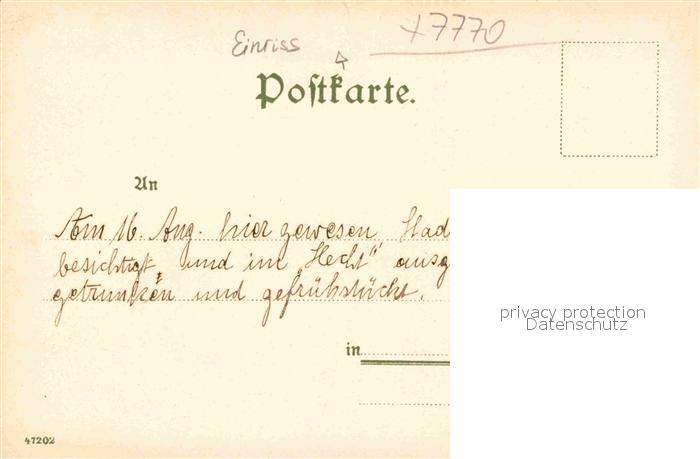 +7770
Einriss
Postkarte.
An
Am 16. Aug. hier gewesen,
besichtigt, und im „Hecht“
getrunken und gefrühstückt.
privacy protection
Datenschutz
in
47202